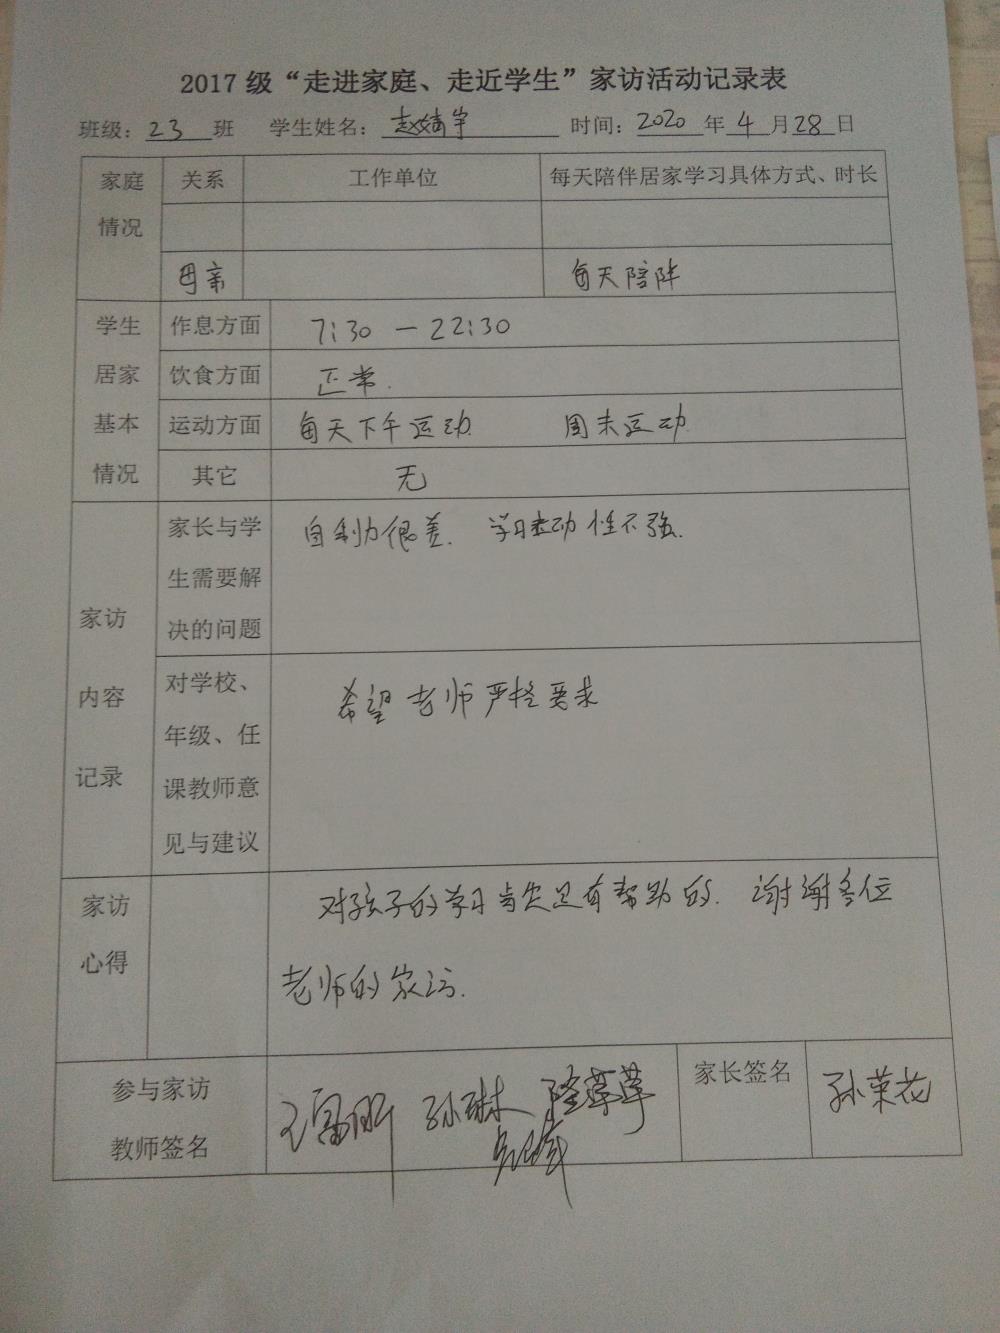 2017 级“走进家庭、走近学生”家访活动记录表
班级: 23 班 学生姓名: 赵婧宇 时间: 2020 年 4 月 28 日
家庭情况 关系 工作单位 每天陪伴居家学习具体方式、时长
母亲 每天陪伴
学生居家基本情况
作息方面 7:30 — 22:30
饮食方面 正常.
运动方面 每天下午运动 周末运动
其它 无
家访内容记录
家长与学
生需要解
决的问题
自制力很差. 学习主动性不强.
对学校、
年级、任
课教师意
见与建议
希望老师严格要求
家访
心得
对孩子的学习肯定是有帮助的. 谢谢各位
老师的家访.
参与家访
教师签名
孙琳
家长签名 孙荣花